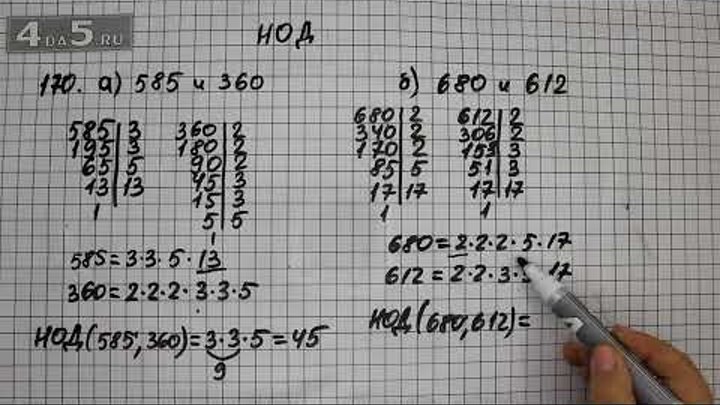 4 да 5.RU
НОД
170. а) 585 и 360
585 | 3
195 | 3
65 | 5
13 | 13
1
360 | 2
180 | 2
90 | 2
45 | 3
15 | 3
5 | 5
1
585 = 3·3·5·13
360 = 2·2·2·3·3·5
НОД(585,360) = 3·3·5 = 45
9
б) 680 и 612
680 | 2
340 | 2
170 | 2
85 | 5
17 | 17
1
612 | 2
306 | 2
153 | 3
51 | 3
17 | 17
1
680 = 2·2·2·5·17
612 = 2·2·3·3·17
НОД(680,612) =